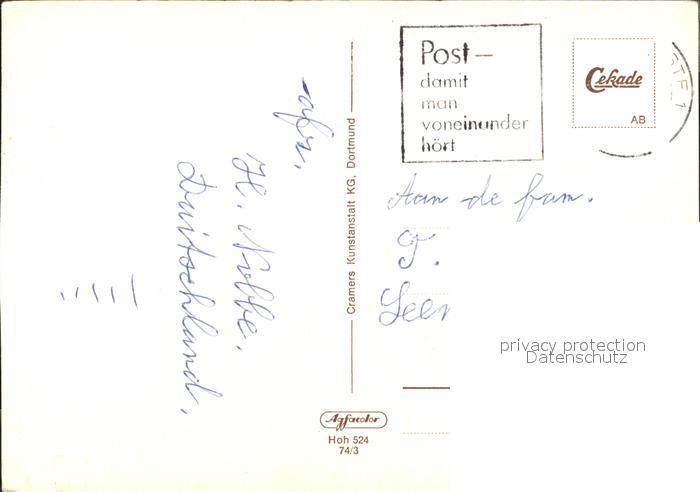 Post —
damit
man
voneinander
hört
Cekade
AB
afz.
H. Nolbe.
Duitschland.
Cramers Kunstanstalt KG, Dortmund
Aan de fam.
T.
Agfacolor
Hoh 524
74/3
privacy protection
Datenschutz